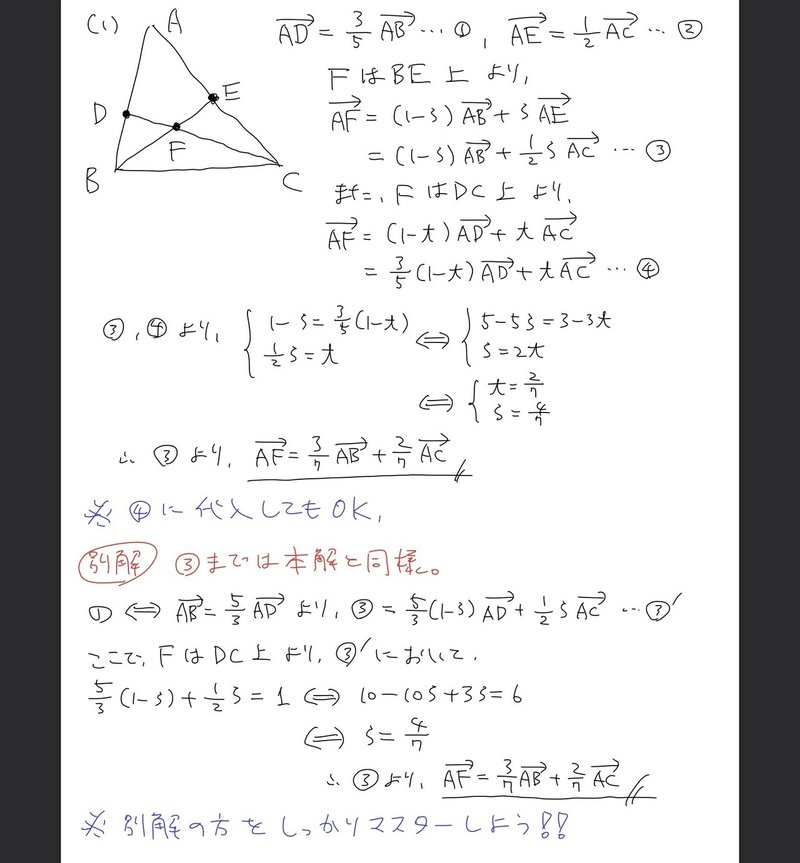 (1)
A
D
E
F
B
C
$\overrightarrow{AD} = \frac{3}{5}\overrightarrow{AB}$ … ①, $\overrightarrow{AE} = \frac{1}{2}\overrightarrow{AC}$ … ②
FはBE上より,
$\overrightarrow{AF} = (1-s)\overrightarrow{AB} + s\overrightarrow{AE}$
$= (1-s)\overrightarrow{AB} + \frac{1}{2}s\overrightarrow{AC}$ … ③
また, FはDC上より,
$\overrightarrow{AF} = (1-t)\overrightarrow{AD} + t\overrightarrow{AC}$
$= \frac{3}{5}(1-t)\overrightarrow{AD} + t\overrightarrow{AC}$ … ④
③, ④より, $\begin{cases} 1-s = \frac{3}{5}(1-t) \\ \frac{1}{2}s = t \end{cases} \iff \begin{cases} 5-5s = 3-3t \\ s = 2t \end{cases}$
$\iff \begin{cases} t = \frac{2}{7} \\ s = \frac{4}{7} \end{cases}$
∴ ③より, $\overrightarrow{AF} = \frac{3}{7}\overrightarrow{AB} + \frac{2}{7}\overrightarrow{AC}$
※ ④に代入してもOK,
別解 ③までは本解と同様。
① ⟺ $\overrightarrow{AB} = \frac{5}{3}\overrightarrow{AD}$ より, ③ $= \frac{5}{3}(1-s)\overrightarrow{AD} + \frac{1}{2}s\overrightarrow{AC}$ … ③′
ここで, FはDC上より, ③′において,
$\frac{5}{3}(1-s) + \frac{1}{2}s = 1 \iff 10-10s+3s = 6$
$\iff s = \frac{4}{7}$
∴ ③より, $\overrightarrow{AF} = \frac{3}{7}\overrightarrow{AB} + \frac{2}{7}\overrightarrow{AC}$
※ 別解の方をしっかりマスターしよう!!